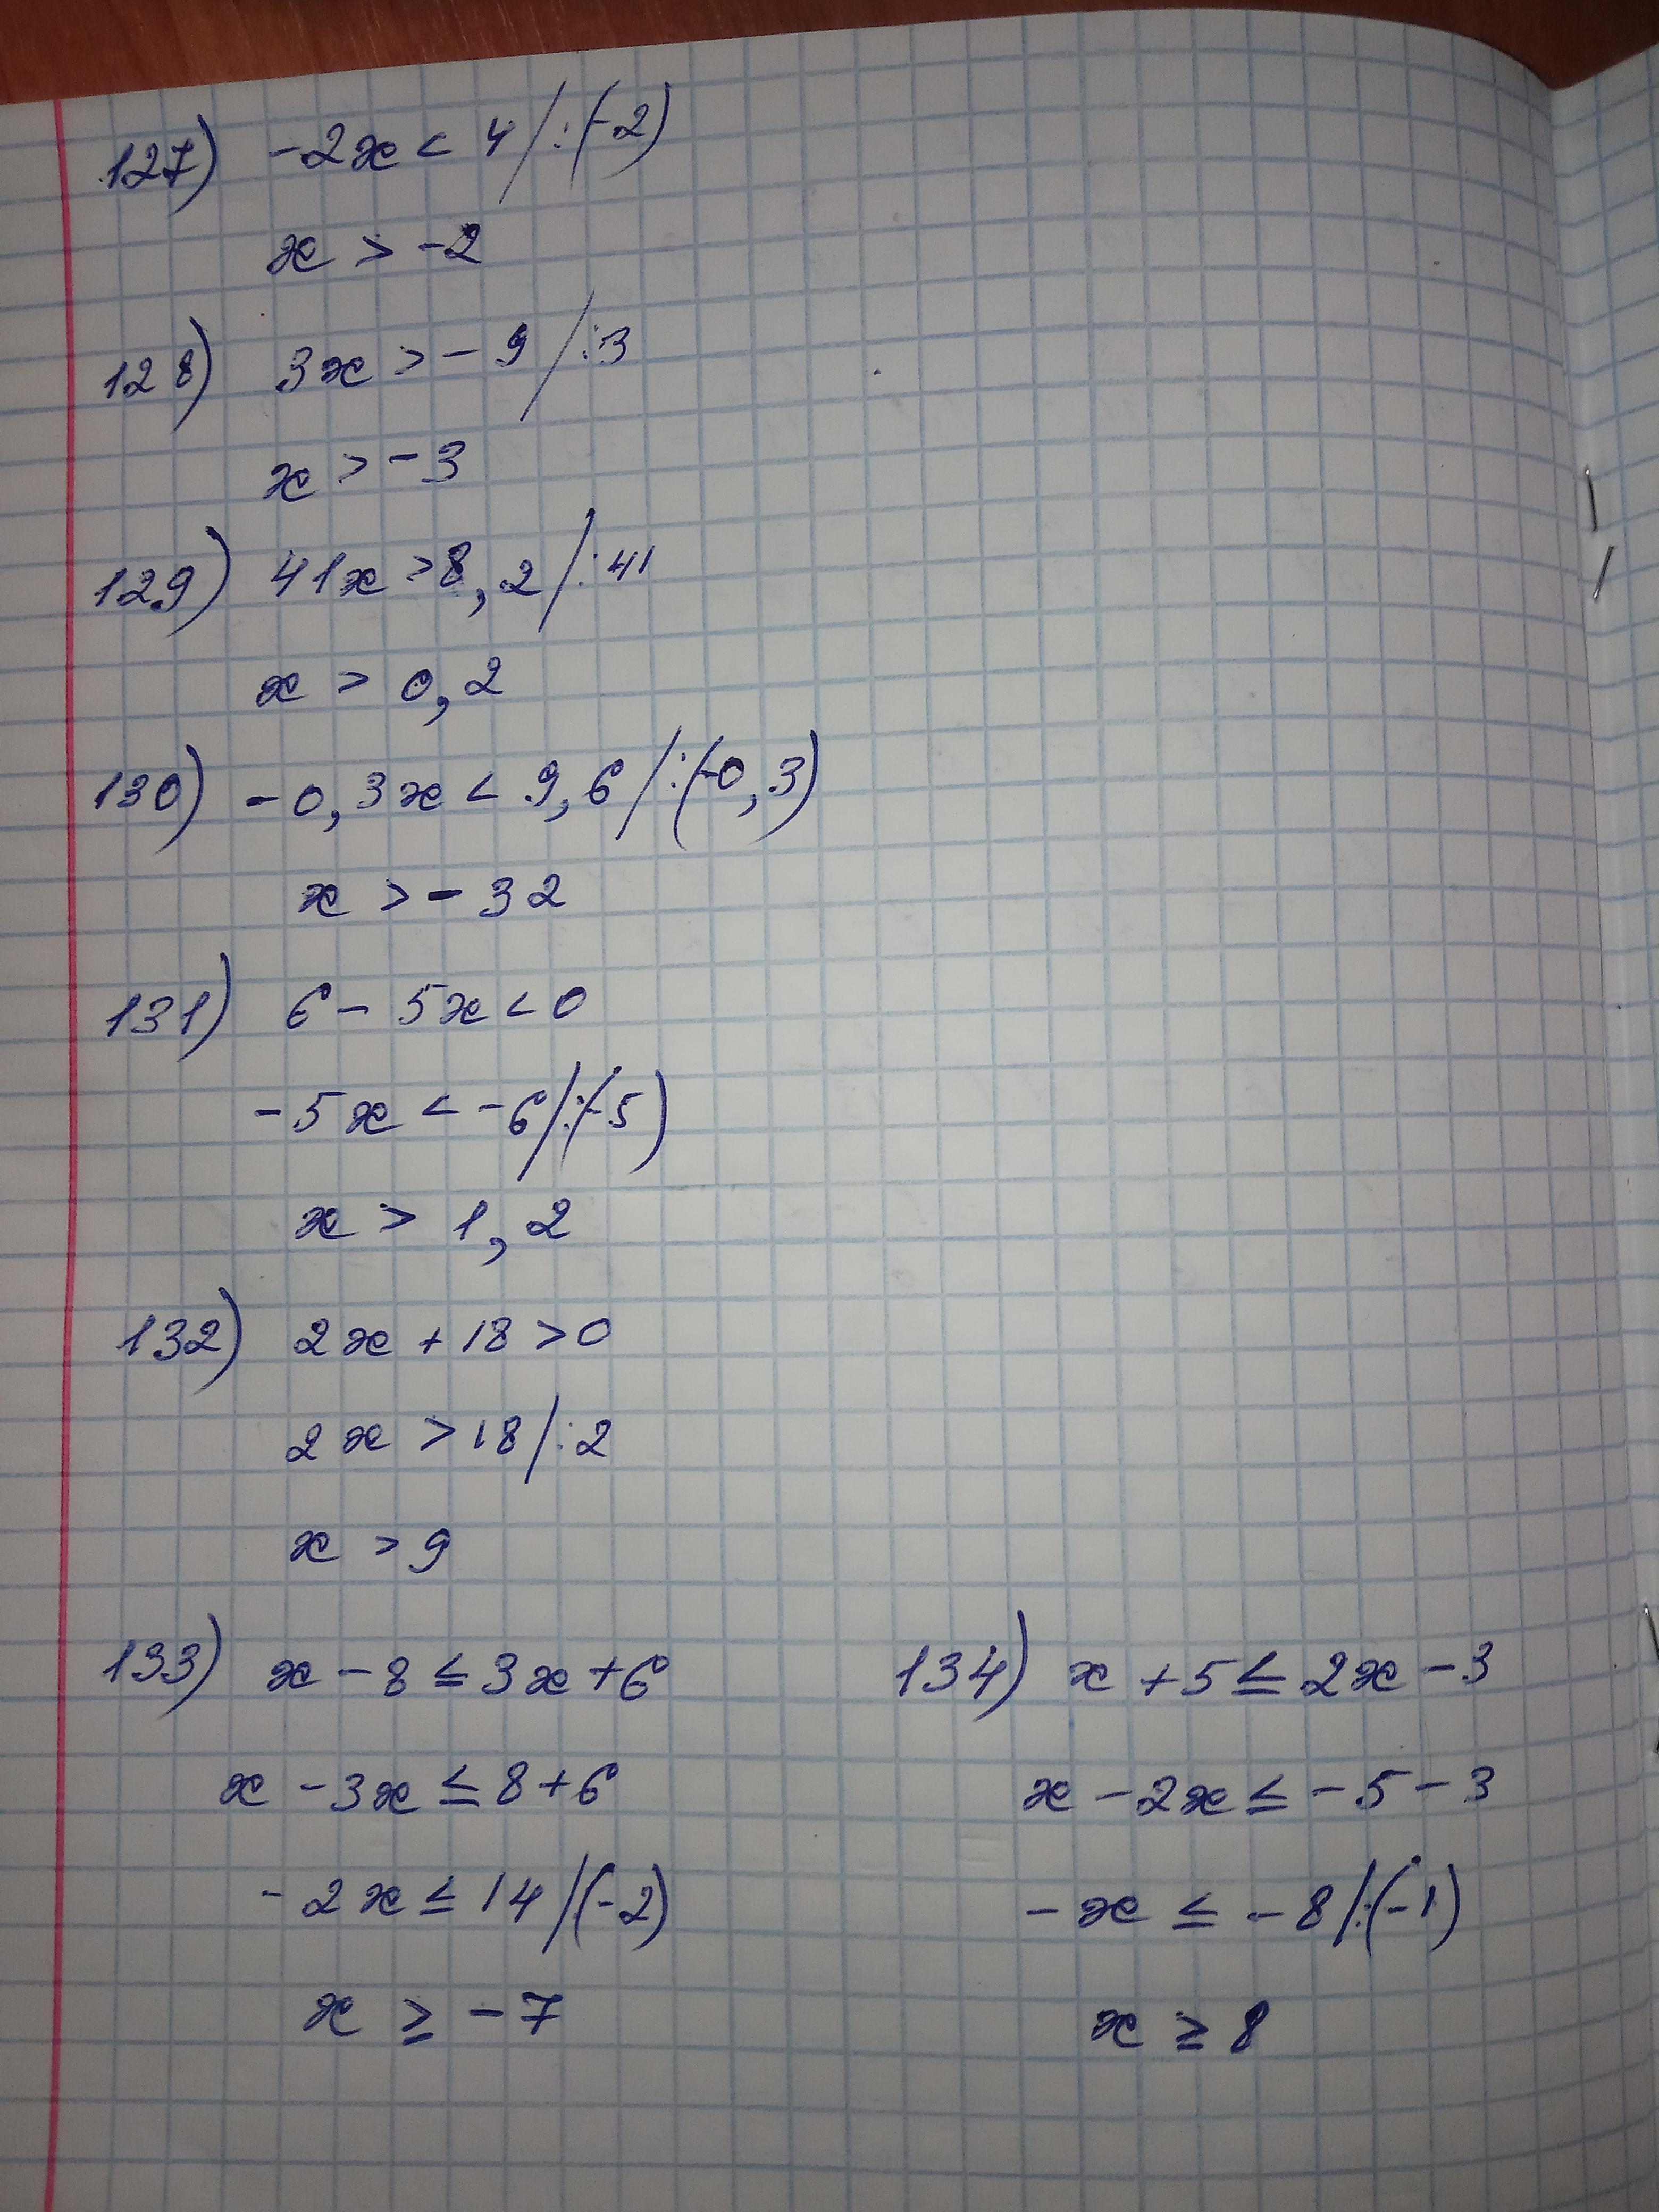 127) -2x < 4 /:(-2)
x > -2
128) 3x > -9 /:3
x > -3
129) 41x > 8,2 /:41
x > 0,2
130) -0,3x < 9,6 /:(-0,3)
x > -32
131) 6 - 5x < 0
-5x < -6 /:(-5)
x > 1,2
132) 2x + 18 > 0
2x > 18 /:2
x > 9
133) x - 8 ≤ 3x + 6
x - 3x ≤ 8 + 6
-2x ≤ 14 /:(-2)
x ≥ -7
134) x + 5 ≤ 2x - 3
x - 2x ≤ -5 - 3
-x ≤ -8 /:(-1)
x ≥ 8